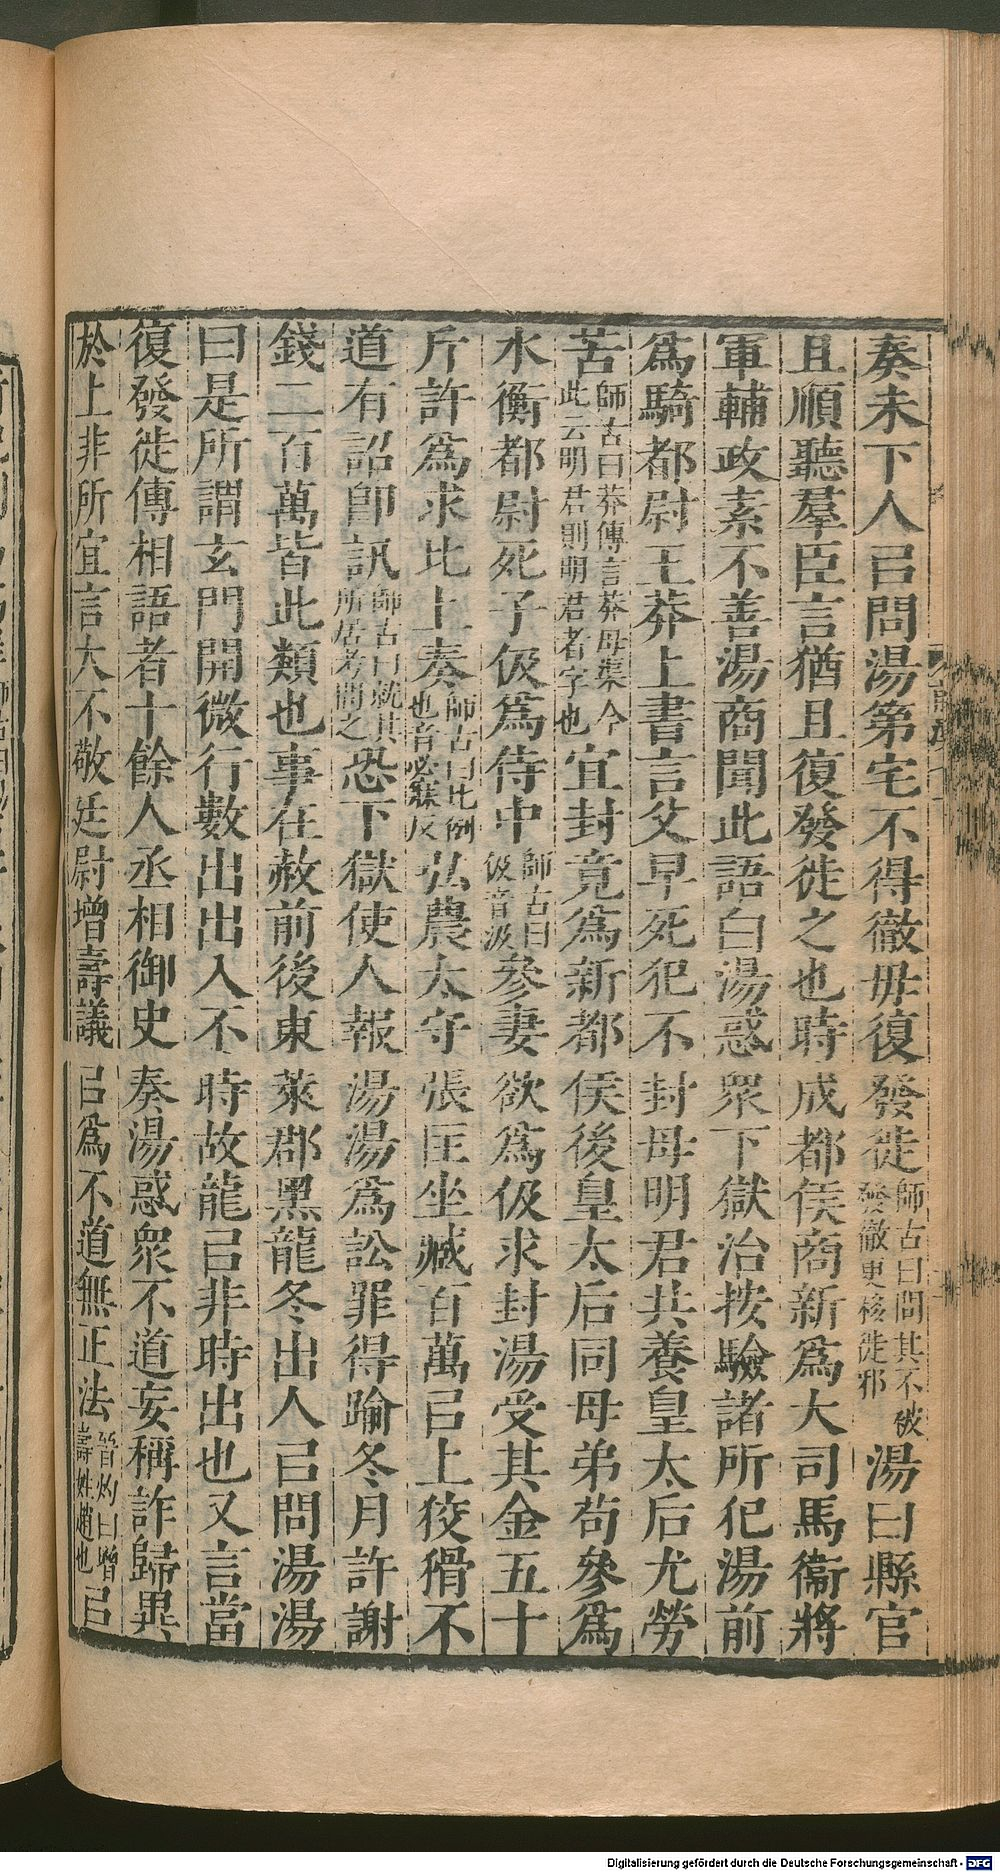 奏未下人㠯問湯第宅不得徹毋復發徙師古曰問其不被發徹更移徙邪湯曰縣官
且順聽羣臣言猶且復發徙之也時成都侯商新爲大司馬衞將
軍輔政素不善湯商聞此語白湯惑衆下獄治按驗諸所犯湯前
爲騎都尉王莽上書言父早死犯不封母明君共養皇太后尤勞
苦師古曰莽傳言莽母渠今此云明君則明君者字也宜封竟爲新都侯後皇太后同母弟苟參爲
水衡都尉死子伋爲侍中師古曰伋音汲參妻欲爲伋求封湯受其金五十
斤許爲求比上奏師古曰比例也音必寐反弘農太守張匡坐臧百萬㠯上狡猾不
道有詔卽訊師古曰就其所居考問之恐下獄使人報湯湯爲訟罪得踰冬月許謝
錢二百萬皆此類也事在赦前後東萊郡黑龍冬出人㠯問湯湯
曰是所謂玄門開微行數出出入不時故龍㠯非時出也又言當
復發徙傳相語者十餘人丞相御史奏湯惑衆不道妄稱詐歸異
於上非所宜言大不敬廷尉增壽議㠯爲不道無正法晉灼曰增壽姓趙也㠯
Digitalisierung gefördert durch die Deutsche Forschungsgemeinschaft - DFG